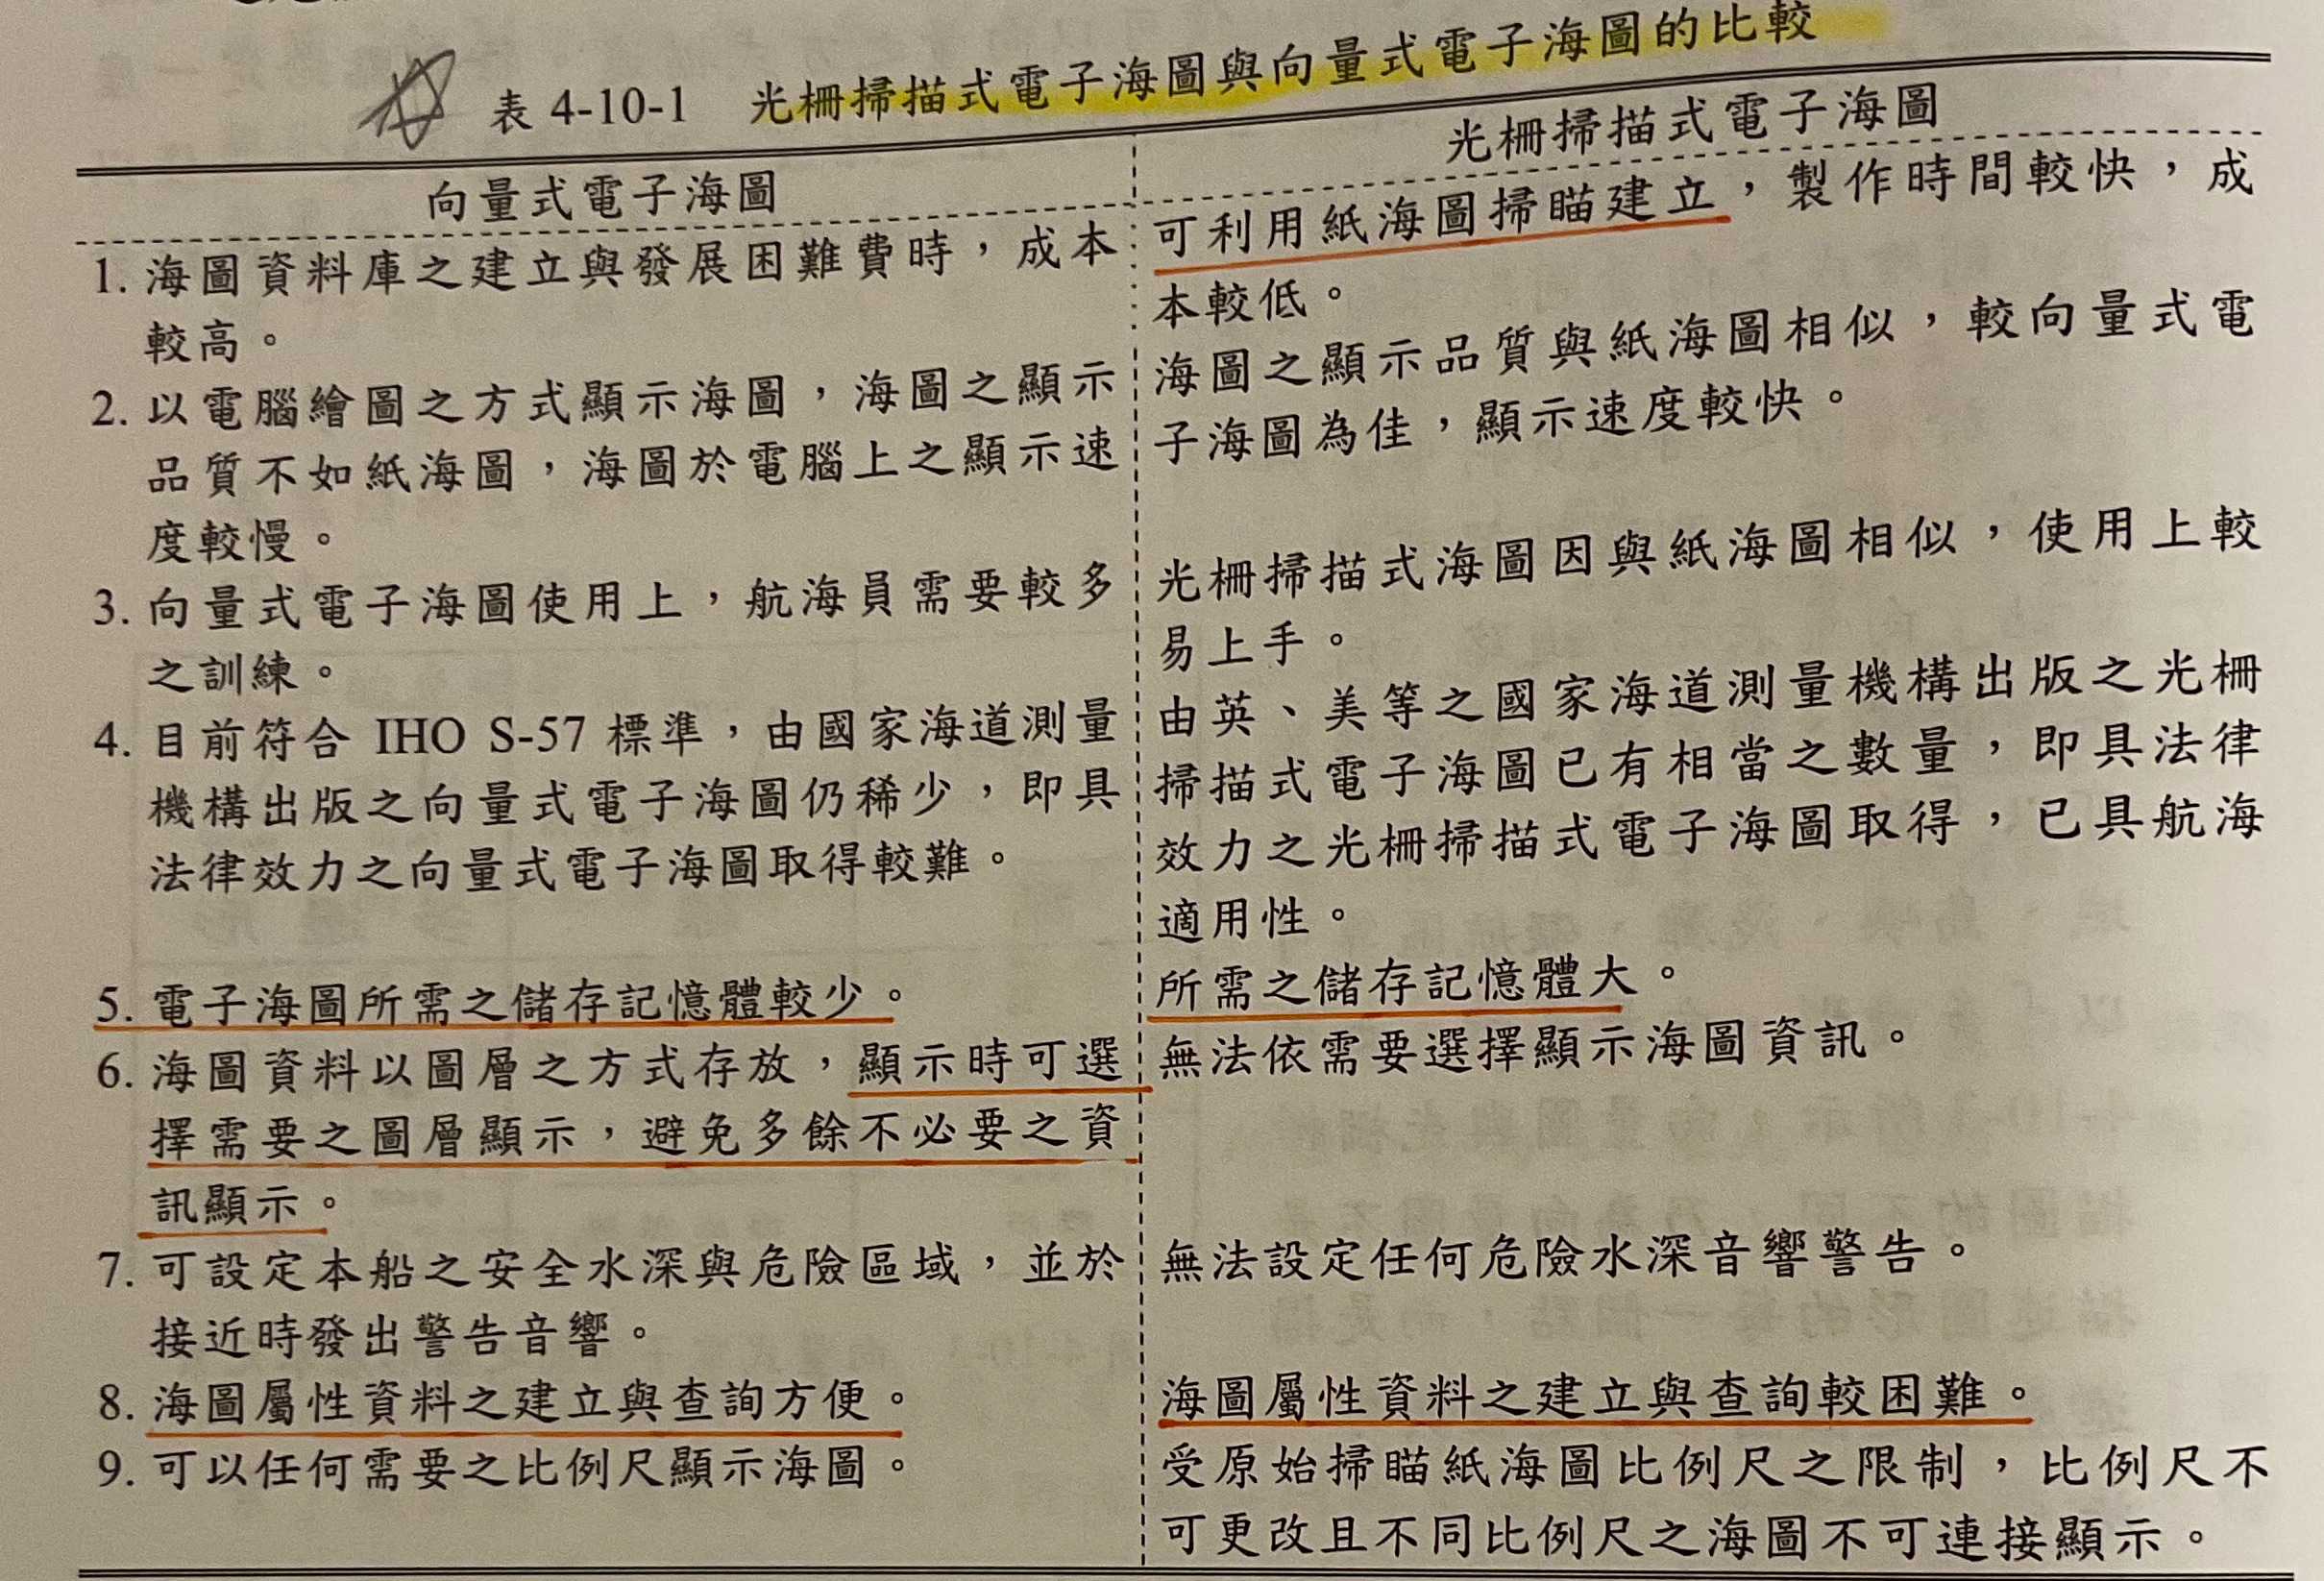 表 4-10-1 光柵掃描式電子海圖與向量式電子海圖的比較
向量式電子海圖
1. 海圖資料庫之建立與發展困難費時，成本
較高。
2. 以電腦繪圖之方式顯示海圖，海圖之顯示
品質不如紙海圖，海圖於電腦上之顯示速
度較慢。
3. 向量式電子海圖使用上，航海員需要較多
之訓練。
4. 目前符合 IHO S-57 標準，由國家海道測量
機構出版之向量式電子海圖仍稀少，即具
法律效力之向量式電子海圖取得較難。
5. 電子海圖所需之儲存記憶體較少。
6. 海圖資料以圖層之方式存放，顯示時可選
擇需要之圖層顯示，避免多餘不必要之資
訊顯示。
7. 可設定本船之安全水深與危險區域，並於
接近時發出警告音響。
8. 海圖屬性資料之建立與查詢方便。
9. 可以任何需要之比例尺顯示海圖。
光柵掃描式電子海圖
可利用紙海圖掃瞄建立，製作時間較快，成
本較低。
海圖之顯示品質與紙海圖相似，較向量式電
子海圖為佳，顯示速度較快。
光柵掃描式海圖因與紙海圖相似，使用上較
易上手。
由英、美等之國家海道測量機構出版之光柵
掃描式電子海圖已有相當之數量，即具法律
效力之光柵掃描式電子海圖取得，已具航海
適用性。
所需之儲存記憶體大。
無法依需要選擇顯示海圖資訊。
無法設定任何危險水深音響警告。
海圖屬性資料之建立與查詢較困難。
受原始掃瞄紙海圖比例尺之限制，比例尺不
可更改且不同比例尺之海圖不可連接顯示。